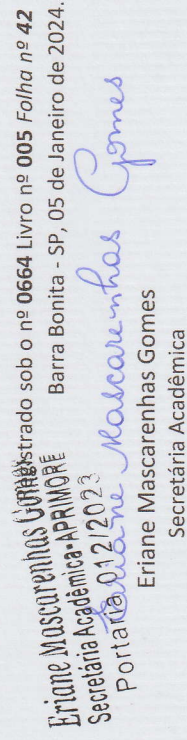 Registrado sob o nº 0664 Livro nº 005 Folha nº 42
Barra Bonita - SP, 05 de Janeiro de 2024.
Eriane Mascarenhas Gomes
Secretária Acadêmica-APRIMORE
Portaria 012/2023
Eriane Mascarenhas Gomes
Eriane Mascarenhas Gomes
Secretária Acadêmica